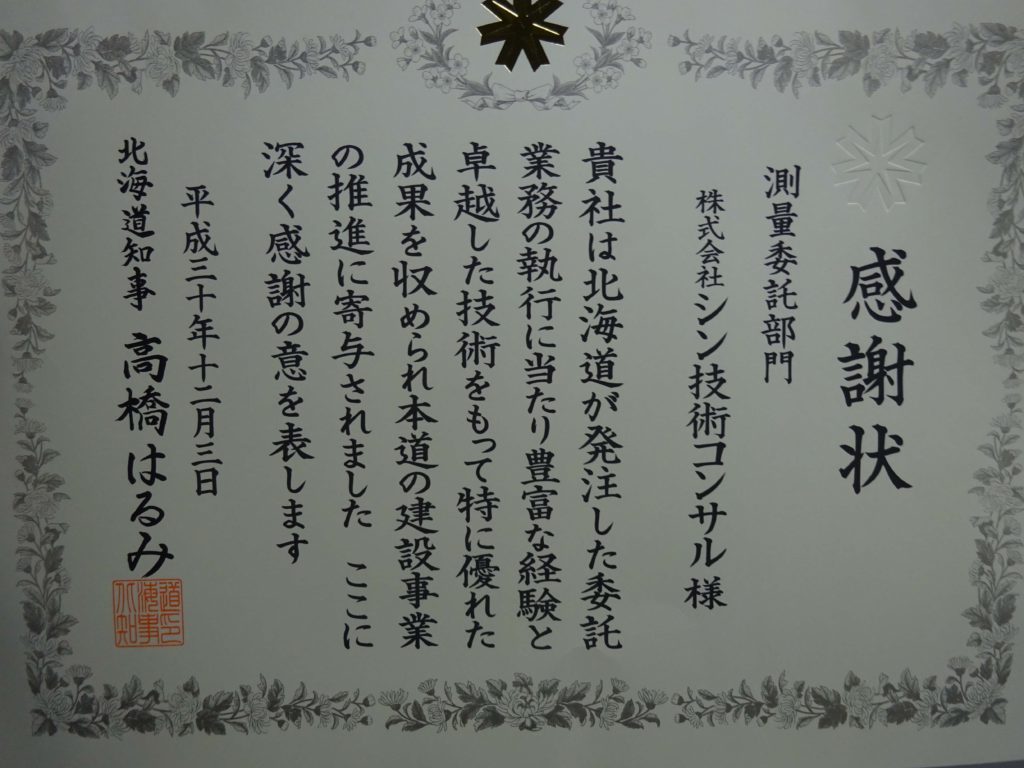 感謝状
測量委託部門
株式会社シン技術コンサル 様
貴社は北海道が発注した委託
業務の執行に当たり豊富な経験と
卓越した技術をもって特に優れた
成果を収められ本道の建設事業
の推進に寄与されました ここに
深く感謝の意を表します
平成三十年十二月三日
北海道知事 高橋はるみ